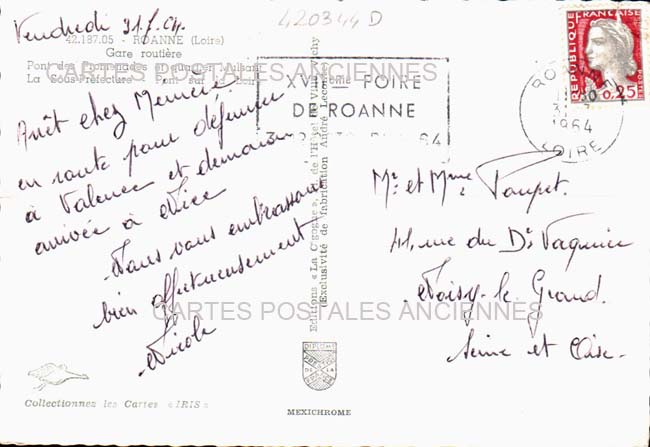 Vendredi 31.7.64
420344 D
42.187.05 - ROANNE (Loire)
Gare routière
Pont des Promenades et quartier Mulsant
La Sous-Préfecture - Pont sur
CARTES POSTALES ANCIENNES
XVIIème FOIRE
DE ROANNE
64
RÉPUBLIQUE FRANÇAISE
0,25
POSTES
1964
LOIRE
Arrêt chez
en route pour déjeuner
à Valence et demain
arrivée à Nice
Nous vous embrassons
bien affectueusement
Nicole
Editions « La Cigogne », de l'Hôtel de Ville, Vichy
(Exclusivité de fabrication André Leconte)
Mr et Mme Poupet.
41, rue du Dr Vaquier
Noisy-le Grand.
Seine et Oise.
CARTES POSTALES ANCIENNES
DIPLOME
DE LA
Collectionnez les Cartes « IRIS »
MEXICHROME